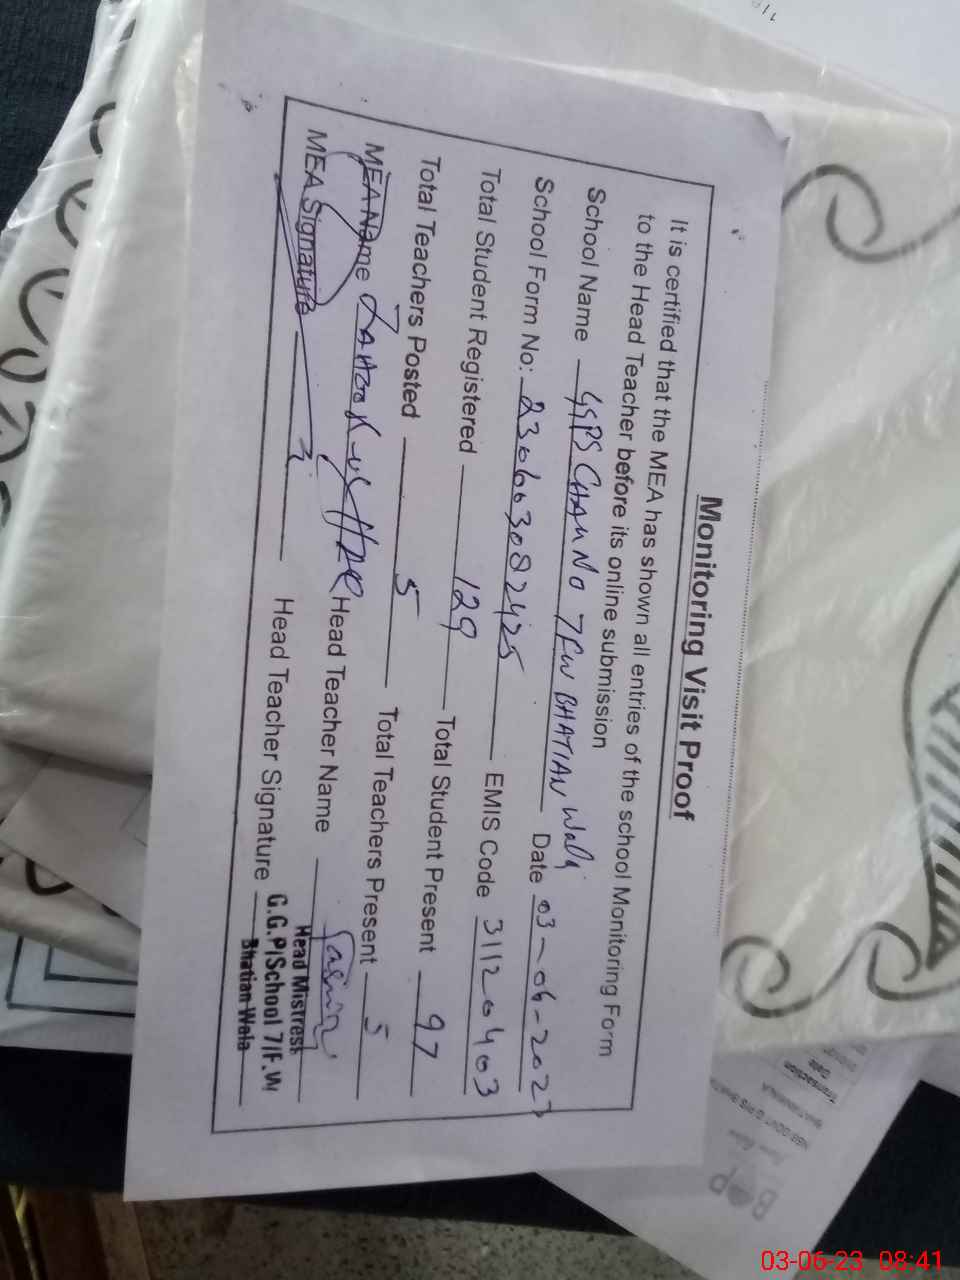 Monitoring Visit Proof
It is certified that the MEA has shown all entries of the school Monitoring Form
to the Head Teacher before its online submission
School Name GGPS CHAK No 7FW BHATIAN Wala Date 03-06-2023
School Form No: 230603082425 EMIS Code 31120403
Total Student Registered 129 Total Student Present 97
Total Teachers Posted 5 Total Teachers Present 5
MEA Name Head Teacher Name
MEA Signature Head Teacher Signature
Head Mistress
G.G.P/School 7/F.W
Bhatian Wala
BOP
Transaction
Date
03-06-23 08:41